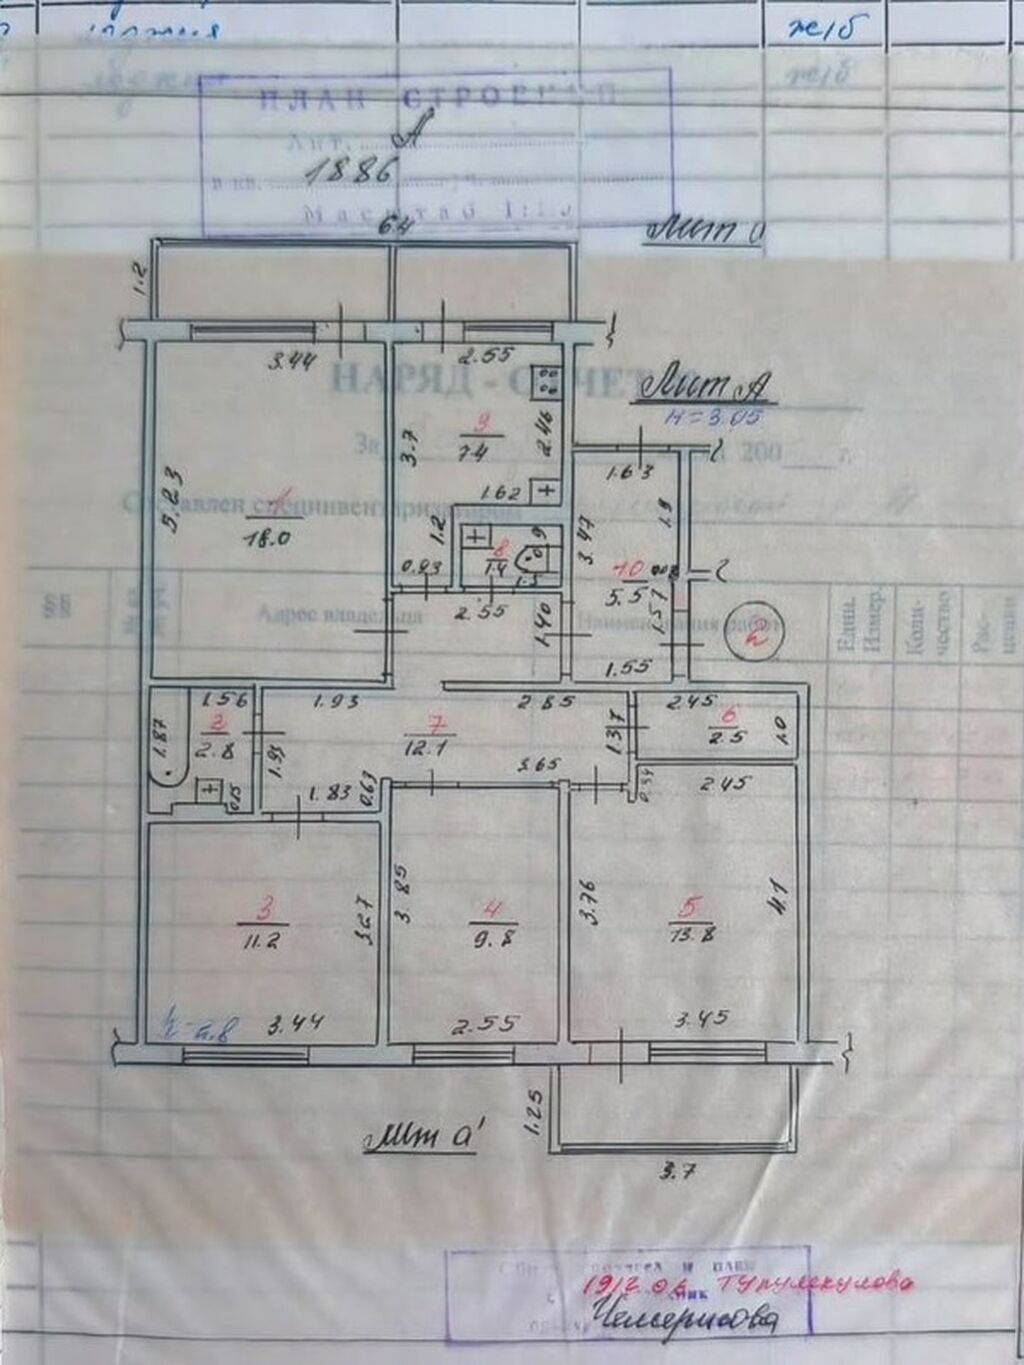 ж/б
ПЛАН СТРОЕНИЯ
Лит. А
в кв. 1886
Масштаб
6.4
Лит
1.2
3.44
2.55
НАРЯД - ОТЧЕТ
Лит А
н=3.05
За 200 г.
9
7.4
3.7
2.46
1.63
5.23
1
18.0
1.62
Составлен специнвентаризатором
1.2
8
1.4
0.9
3.47
1.9
0.93
1.5
10
5.5
§§
Адрес владельца
2.55
1.40
Наименования работ
1.57
2
Един. Измер.
Количество
Расценки
1.55
1.87
1.56
2
2.8
1.93
2.85
2.45
6
2.5
1.0
7
12.1
1.37
1.93
3.65
0.15
1.83
0.63
0.34
2.45
3
11.2
3.27
3.85
4
9.8
3.76
5
13.8
4.1
3.44
2.55
3.45
Лит а'
1.25
3.7
Чемерисова